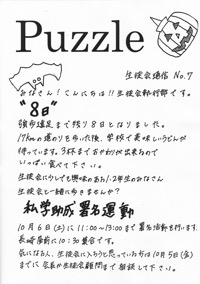 Puzzle
生徒会通信 No.7
みなさん!こんにちは!!生徒会執行部です。
"8日"
強歩遠足まで残り8日となりました。
17kmの道のりを歩いた後、学校で美味しいうどんが
待っています。3杯までおかわりが出来るので
いっぱい食べて下さい。
生徒会に少しでも興味のある1.2年生のみなさん
生徒会と一緒に歩きませんか?
私学助成署名運動
10月6日(土)に11:00~13:00まで署名活動を行います。
長崎駅前に10:30集合です。
気になる人、生徒会に入ろうと思っている方は10月5日(金)
までに会長か生徒会顧問まで相談して下さい。